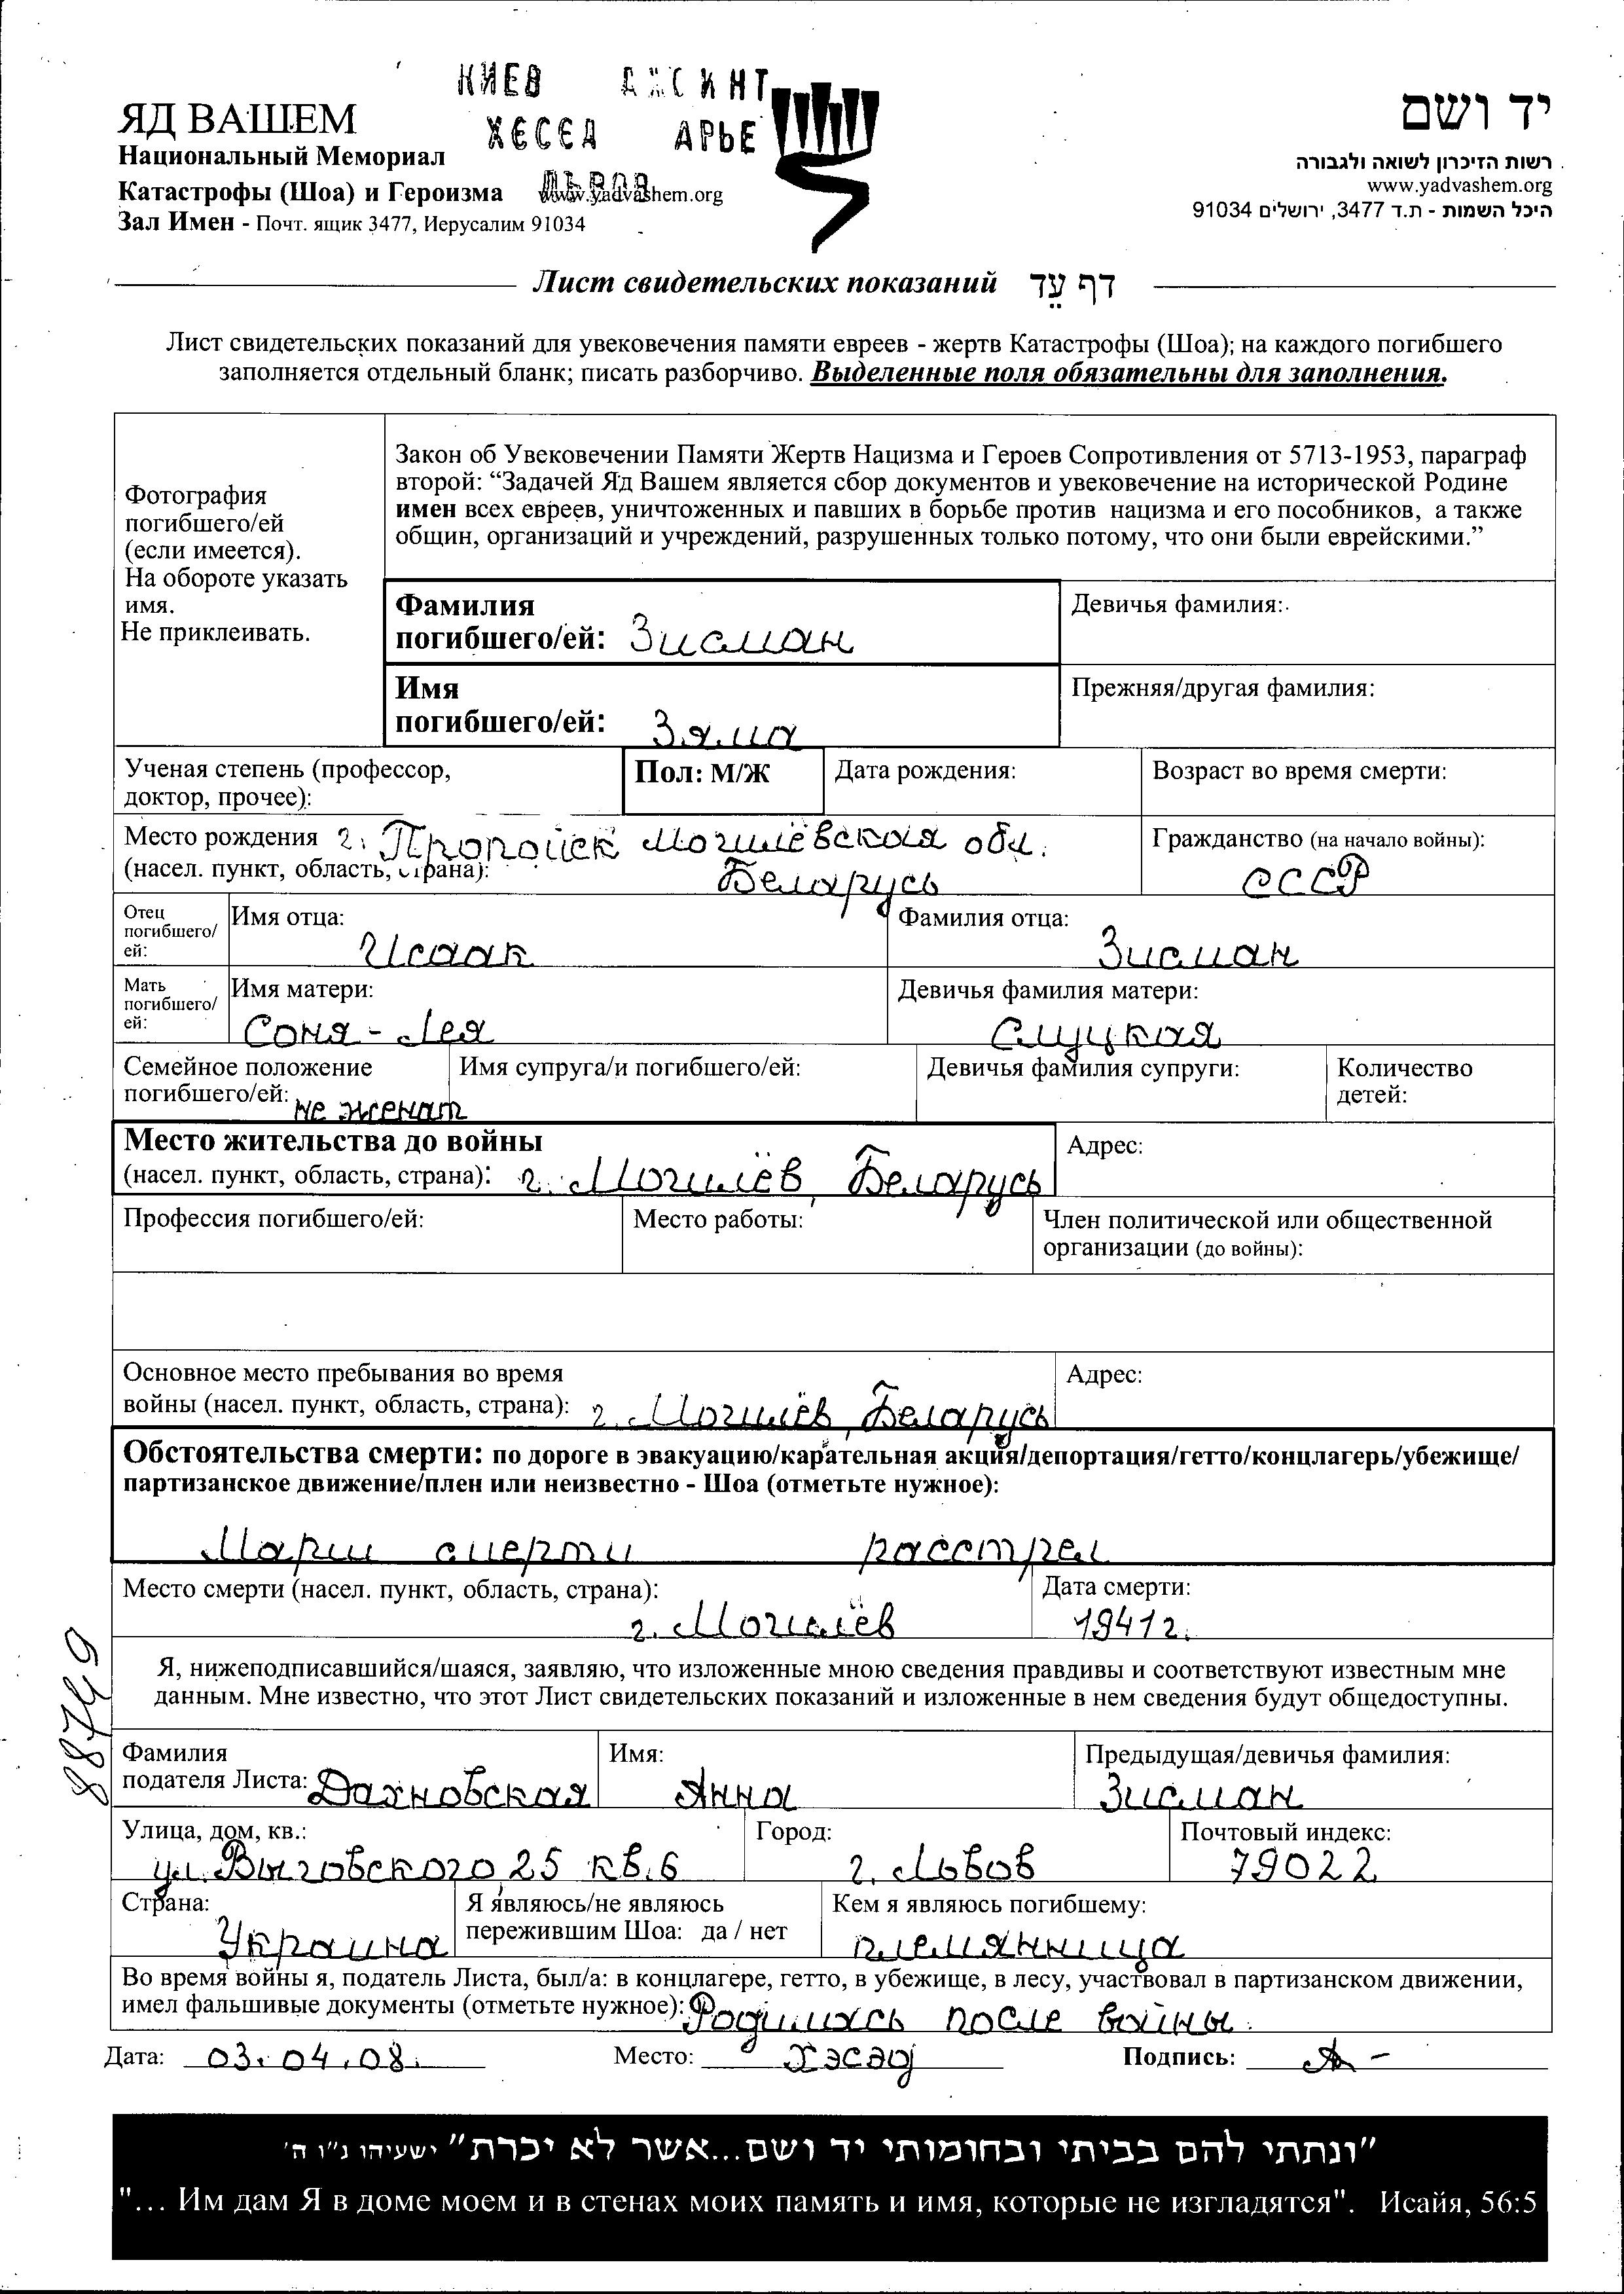 КИЕВ ДЖОИНТ
ХЕСЕД АРЬЕ
ЛЬВОВ
ЯД ВАШЕМ
Национальный Мемориал
Катастрофы (Шоа) и Героизма www.yadvashem.org
Зал Имен - Почт. ящик 3477, Иерусалим 91034
יד ושם
רשות הזיכרון לשואה ולגבורה
www.yadvashem.org
היכל השמות - ת.ד 3477, ירושלים 91034
Лист свидетельских показаний דף עֵד
Лист свидетельских показаний для увековечения памяти евреев - жертв Катастрофы (Шоа); на каждого погибшего
заполняется отдельный бланк; писать разборчиво. Выделенные поля обязательны для заполнения.
Фотография
погибшего/ей
(если имеется).
На обороте указать
имя.
Не приклеивать.
Закон об Увековечении Памяти Жертв Нацизма и Героев Сопротивления от 5713-1953, параграф
второй: “Задачей Яд Вашем является сбор документов и увековечение на исторической Родине
имен всех евреев, уничтоженных и павших в борьбе против нацизма и его пособников, а также
общин, организаций и учреждений, разрушенных только потому, что они были еврейскими.”
Фамилия
погибшего/ей: Зисман
Девичья фамилия:
Имя
погибшего/ей: Зяма
Прежняя/другая фамилия:
Ученая степень (профессор,
доктор, прочее):
Пол: М/Ж
Дата рождения:
Возраст во время смерти:
Место рождения г. Пропойск Могилёвская обл.
(насел. пункт, область, страна): Беларусь
Гражданство (на начало войны):
СССР
Отец
погибшего/
ей:
Имя отца:
Исаак
Фамилия отца:
Зисман
Мать
погибшего/
ей:
Имя матери:
Соня-Лея
Девичья фамилия матери:
Слуцкая
Семейное положение
погибшего/ей: не женат
Имя супруга/и погибшего/ей:
Девичья фамилия супруги:
Количество
детей:
Место жительства до войны
(насел. пункт, область, страна): г. Могилёв, Беларусь
Адрес:
Профессия погибшего/ей:
Место работы:
Член политической или общественной
организации (до войны):
Основное место пребывания во время
войны (насел. пункт, область, страна): г. Могилёв, Беларусь
Адрес:
Обстоятельства смерти: по дороге в эвакуацию/карательная акция/депортация/гетто/концлагерь/убежище/
партизанское движение/плен или неизвестно - Шоа (отметьте нужное):
Марш смерти расстрел
Место смерти (насел. пункт, область, страна):
г. Могилёв
Дата смерти:
1941г.
Я, нижеподписавшийся/шаяся, заявляю, что изложенные мною сведения правдивы и соответствуют известным мне
данным. Мне известно, что этот Лист свидетельских показаний и изложенные в нем сведения будут общедоступны.
Фамилия
подателя Листа: Дахновская
Имя:
Анна
Предыдущая/девичья фамилия:
Зисман
Улица, дом, кв.:
ул. Выговского, 25 кв. 6
Город:
г. Львов
Почтовый индекс:
79022
Страна:
Украина
Я являюсь/не являюсь
пережившим Шоа: да / нет
Кем я являюсь погибшему:
племянница
Во время войны я, податель Листа, был/а: в концлагере, гетто, в убежище, в лесу, участвовал в партизанском движении,
имел фальшивые документы (отметьте нужное): Родилась после войны.
Дата: 03.04.08. Место: Хэсэд Подпись:
"ונתתי להם בביתי ובחומותי יד ושם...אשר לא יכרת" ישעיהו נ"ו ה'
"... Им дам Я в доме моем и в стенах моих память и имя, которые не изгладятся". Исайя, 56:5